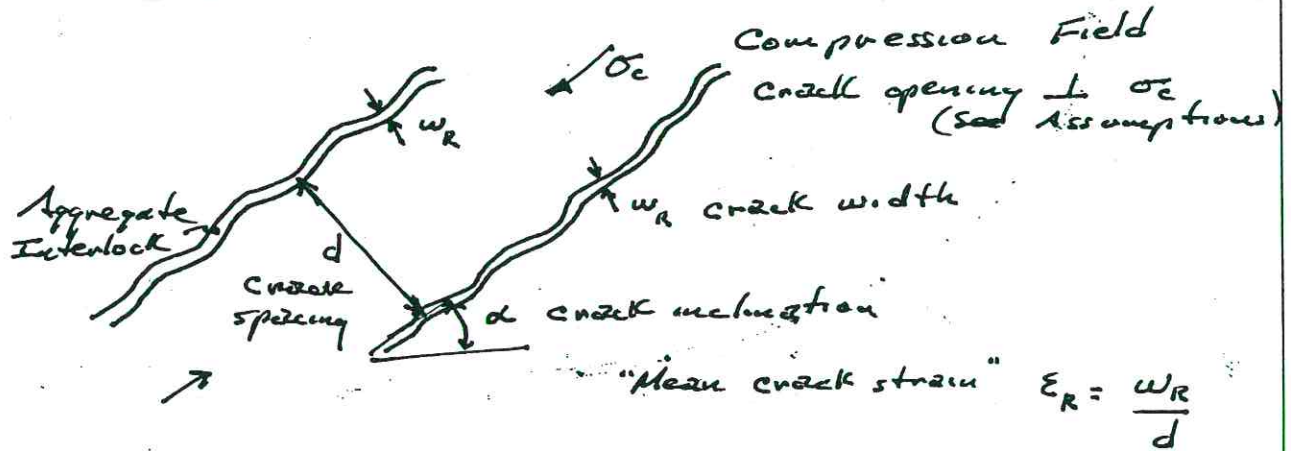 Compression Field
σc
crack opening ⊥ σc
(See Assumptions)
wR
wR crack width
Aggregate
Interlock
d
Crack
spacing
α crack inclination
"Mean crack strain" εR = wR
d